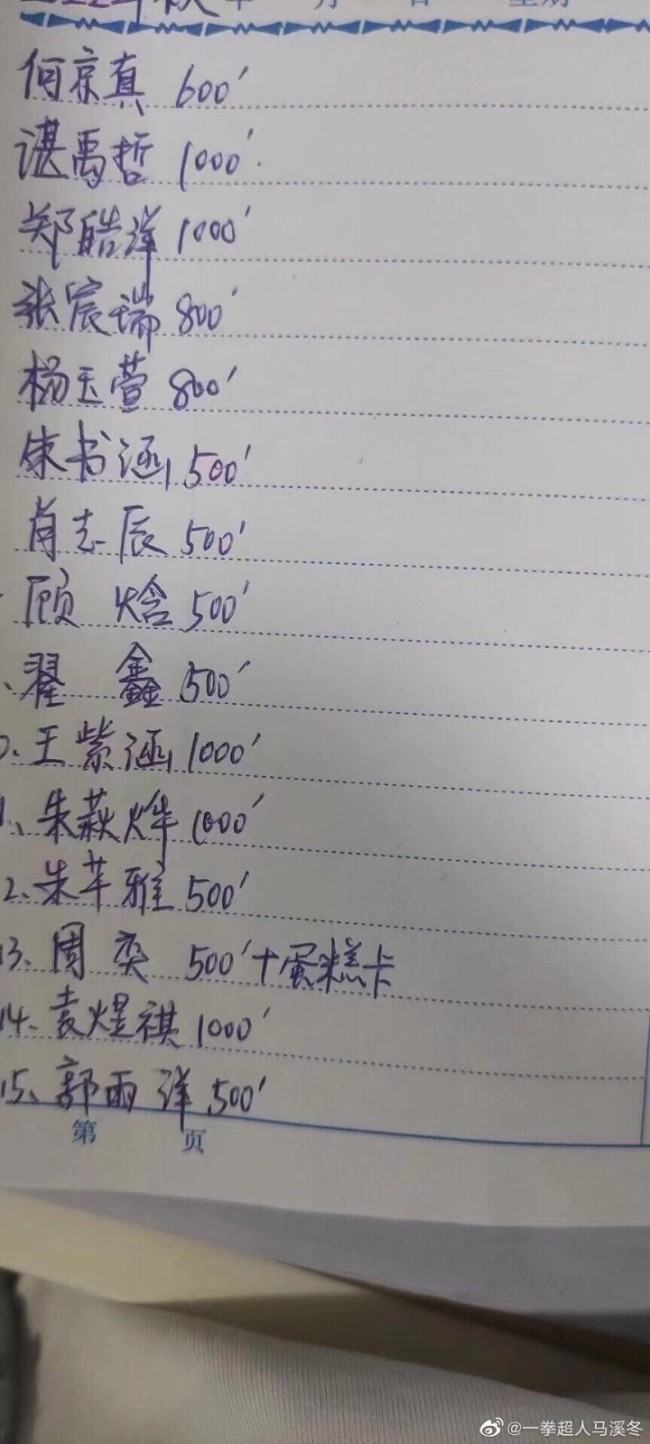 年 月 日 星期
何京真 600'
谌禹哲 1000'
郑皓洋 1000'
张宸瑞 800'
杨玉萱 800'
朱书涵 500'
肖志辰 500'
顾 焓 500'
、翟 鑫 500'
0、王紫涵 1000'
1、朱萩烨 1000'
2、朱芊雅 500'
13、周奕 500'+蛋糕卡
14、袁煜祺 1000'
15、郭雨洋 500'
第 页
@一拳超人马溪冬